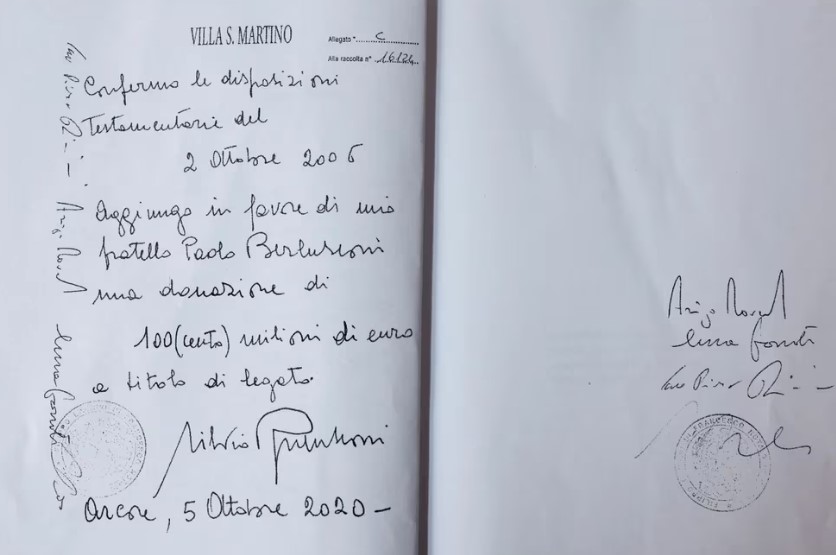 VILLA S. MARTINO
Allegato "C
Alla raccolta n° 16124
Confermo le disposizioni
testamentarie del
2 Ottobre 2006
Aggiungo in favore di mio
fratello Paolo Berlusconi
una donazione di
100 (cento) milioni di euro
a titolo di legato.
Silvio Berlusconi
Arcore, 5 Ottobre 2020 -